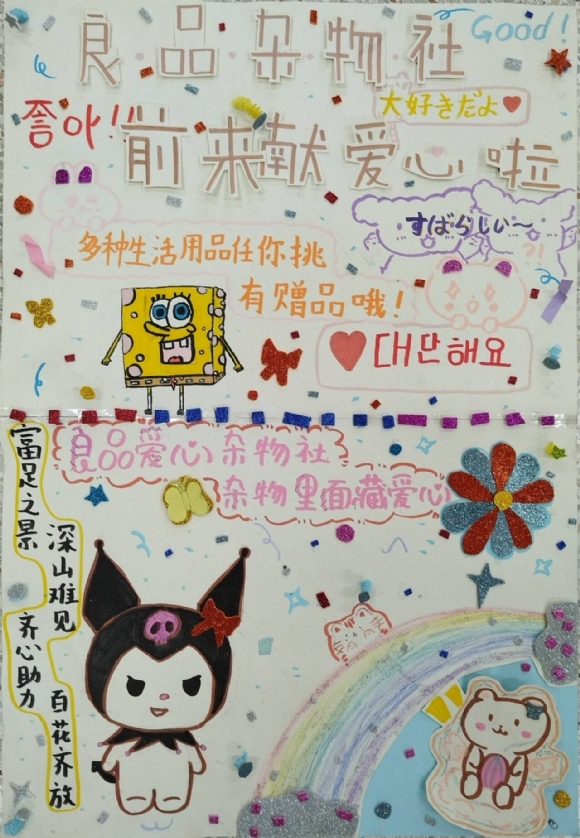 良品杂物社
Good!
좋아!!
大好きだよ
前来献爱心啦
すばらしい～
多种生活用品任你挑
?!
有赠品哦!
대단해요
良品爱心杂物社
杂物里面藏爱心
富足之景
深山难见
齐心助力
百花齐放